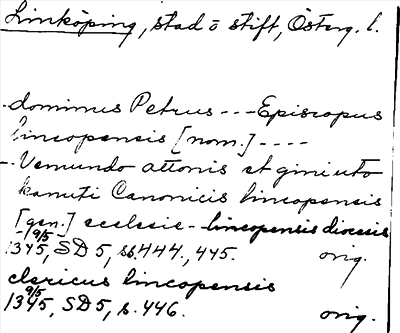 Linköping, stad o stift, Österg. l.
-dominus Petrus --- Episcopus
lincopensis [nom.] ----
-. Vemundo attonis et giniuto
kanuti Canonicis lincopensis
[gen.] ecclesie - lincopensis diocesis
19/5
1345, SD 5, ss. 444, 445. orig.
clericus lincopensis
9/5
1345, SD 5, s. 446. orig.